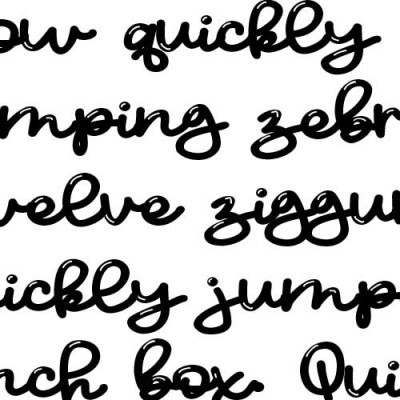 ow quickly
mping zebr
velve ziggur
ickly jump
nch box. Qui